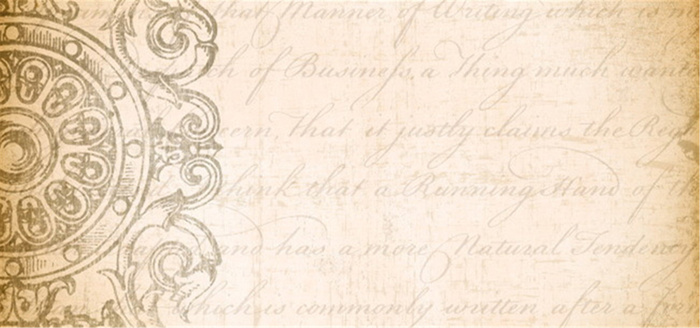 that Manner of Writing which is m
ch of Business, a Thing much want
cern, that it justly claims the Reg
think that a Running Hand of th
and has a more Natural Tendency
which is commonly written after a